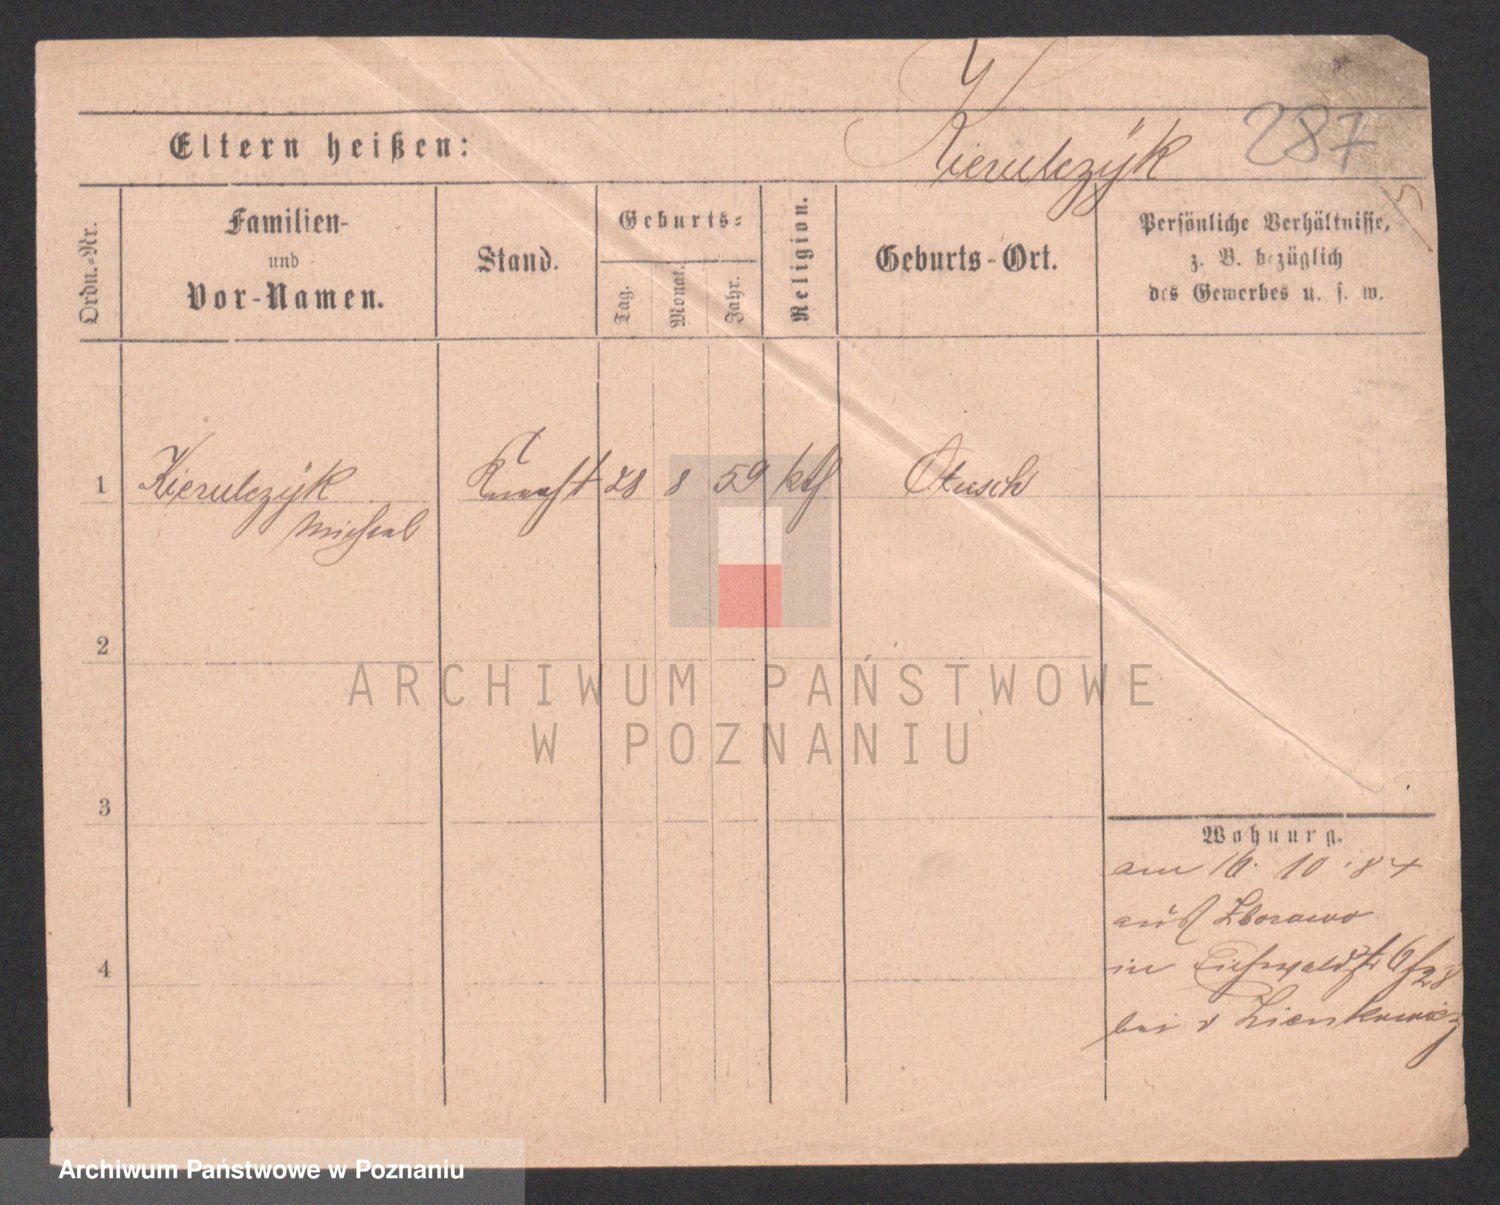 Kierulczÿk
287
Eltern heißen:
Ordn.-Nr.
Familien-
und
Vor-Namen.
Stand.
Geburts-
Tag.
Monat.
Jahr.
Religion.
Geburts-Ort.
Persönliche Verhältnisse,
z. B. bezüglich
des Gewerbes u. s. w.
1 Kierulczÿk 28 8 59 kth Otusch
Michael
2
3
4
Wohnung.
am 16. 10. 84
auß Zborowo
in Eichwaldstr 6/28
bei v Zienkowicz
ARCHIWUM PAŃSTWOWE
W POZNANIU
Archiwum Państwowe w Poznaniu